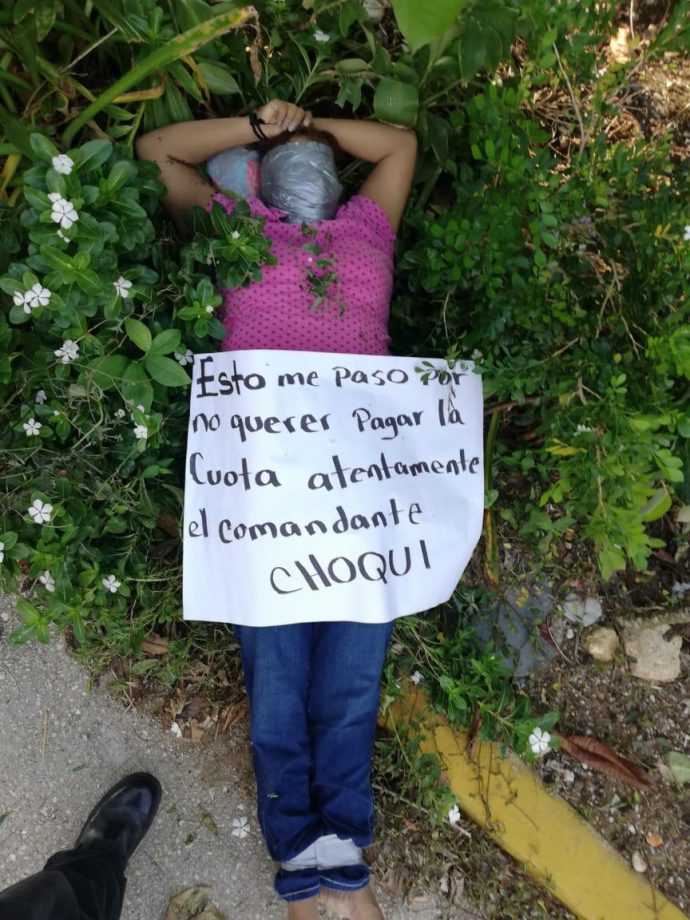 Esto me paso Por
no querer Pagar la
Cuota atentamente
el comandante
CHOQUI